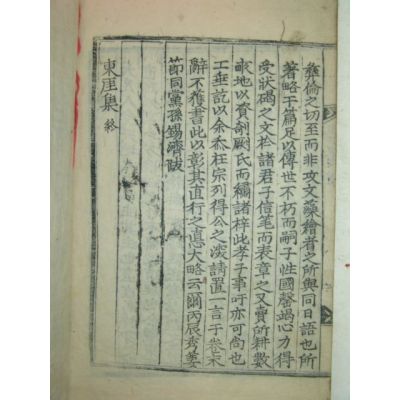 彜倫之切至而非攻文藻繪者之所與同日語也所
著略干篇足以傳世不朽而嗣子性國罄竭心力得
受狀碣之文於諸君子信筆而表章之又賣所耕數
畝地以資剞厥氏而繡諸梓此孝子事吁亦可尙也
工垂訖以余忝在宗列得公之深請置一言于卷末
辭不獲書此以彰其直行之悳大略云爾丙辰秀葽
節同黨孫錫濟跋
東厓集 終